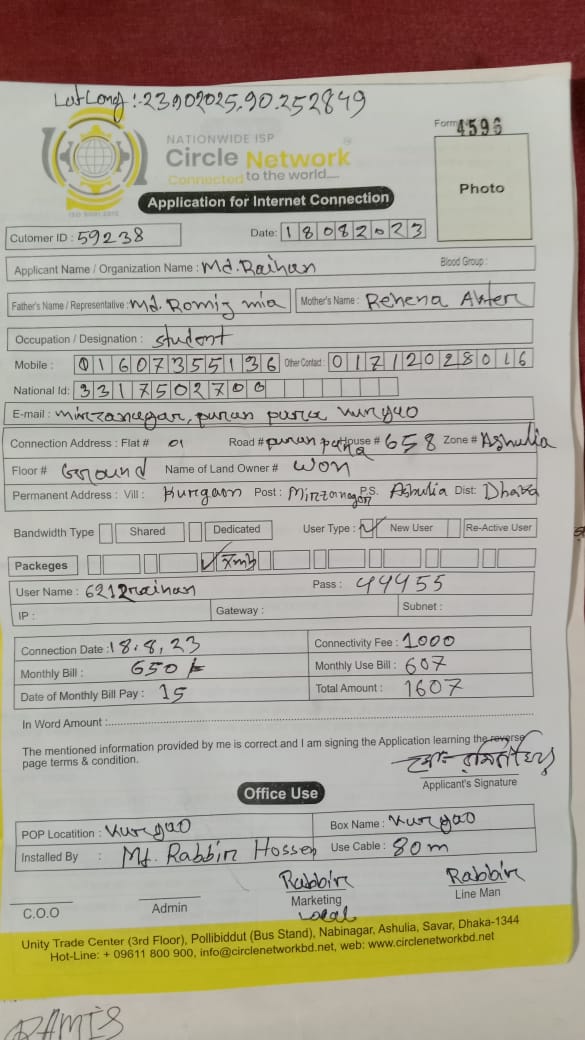 LatLong:-23.902025,90.252849
Form 4596
NATIONWIDE ISP
Circle Network
Connected to the world....
ISO 9001:2015
Photo
Application for Internet Connection
Cutomer ID : 59238 Date: 18082023
Applicant Name / Organization Name : Md. Raihan Blood Group :
Father's Name / Representative : Md. Romiz mia Mother's Name : Rehena Akter
Occupation / Designation : student
Mobile : 01607355136 Other Contact : 01712028016
National Id: 3317502700
E-mail : mirzanagar, puran para kurgao
Connection Address : Flat # 01 Road # puran para House # 658 Zone # Ashulia
Floor # Ground Name of Land Owner # won
Permanent Address : Vill : Kurgaon Post : Mirzanagor P.S. Ashulia Dist: Dhaka
Bandwidth Type Shared Dedicated User Type : New User Re-Active User
Packeges 7mb
User Name : 6212raihan Pass : 44455
IP : Gateway : Subnet :
Connection Date : 18.8,23 Connectivity Fee : 1000
Monthly Bill : 650/= Monthly Use Bill : 607
Date of Monthly Bill Pay : 15 Total Amount : 1607
In Word Amount :
The mentioned information provided by me is correct and I am signing the Application learning the reverse
page terms & condition.
Applicant's Signature
Office Use
POP Locatition : kurgao Box Name : kurgao
Installed By : Md. Rabbin Hossen Use Cable : 80m
Rabbin Rabbin
C.O.O Admin Marketing Line Man
Local
Unity Trade Center (3rd Floor), Pollibiddut (Bus Stand), Nabinagar, Ashulia, Savar, Dhaka-1344
Hot-Line: + 09611 800 900, info@circlenetworkbd.net, web: www.circlenetworkbd.net